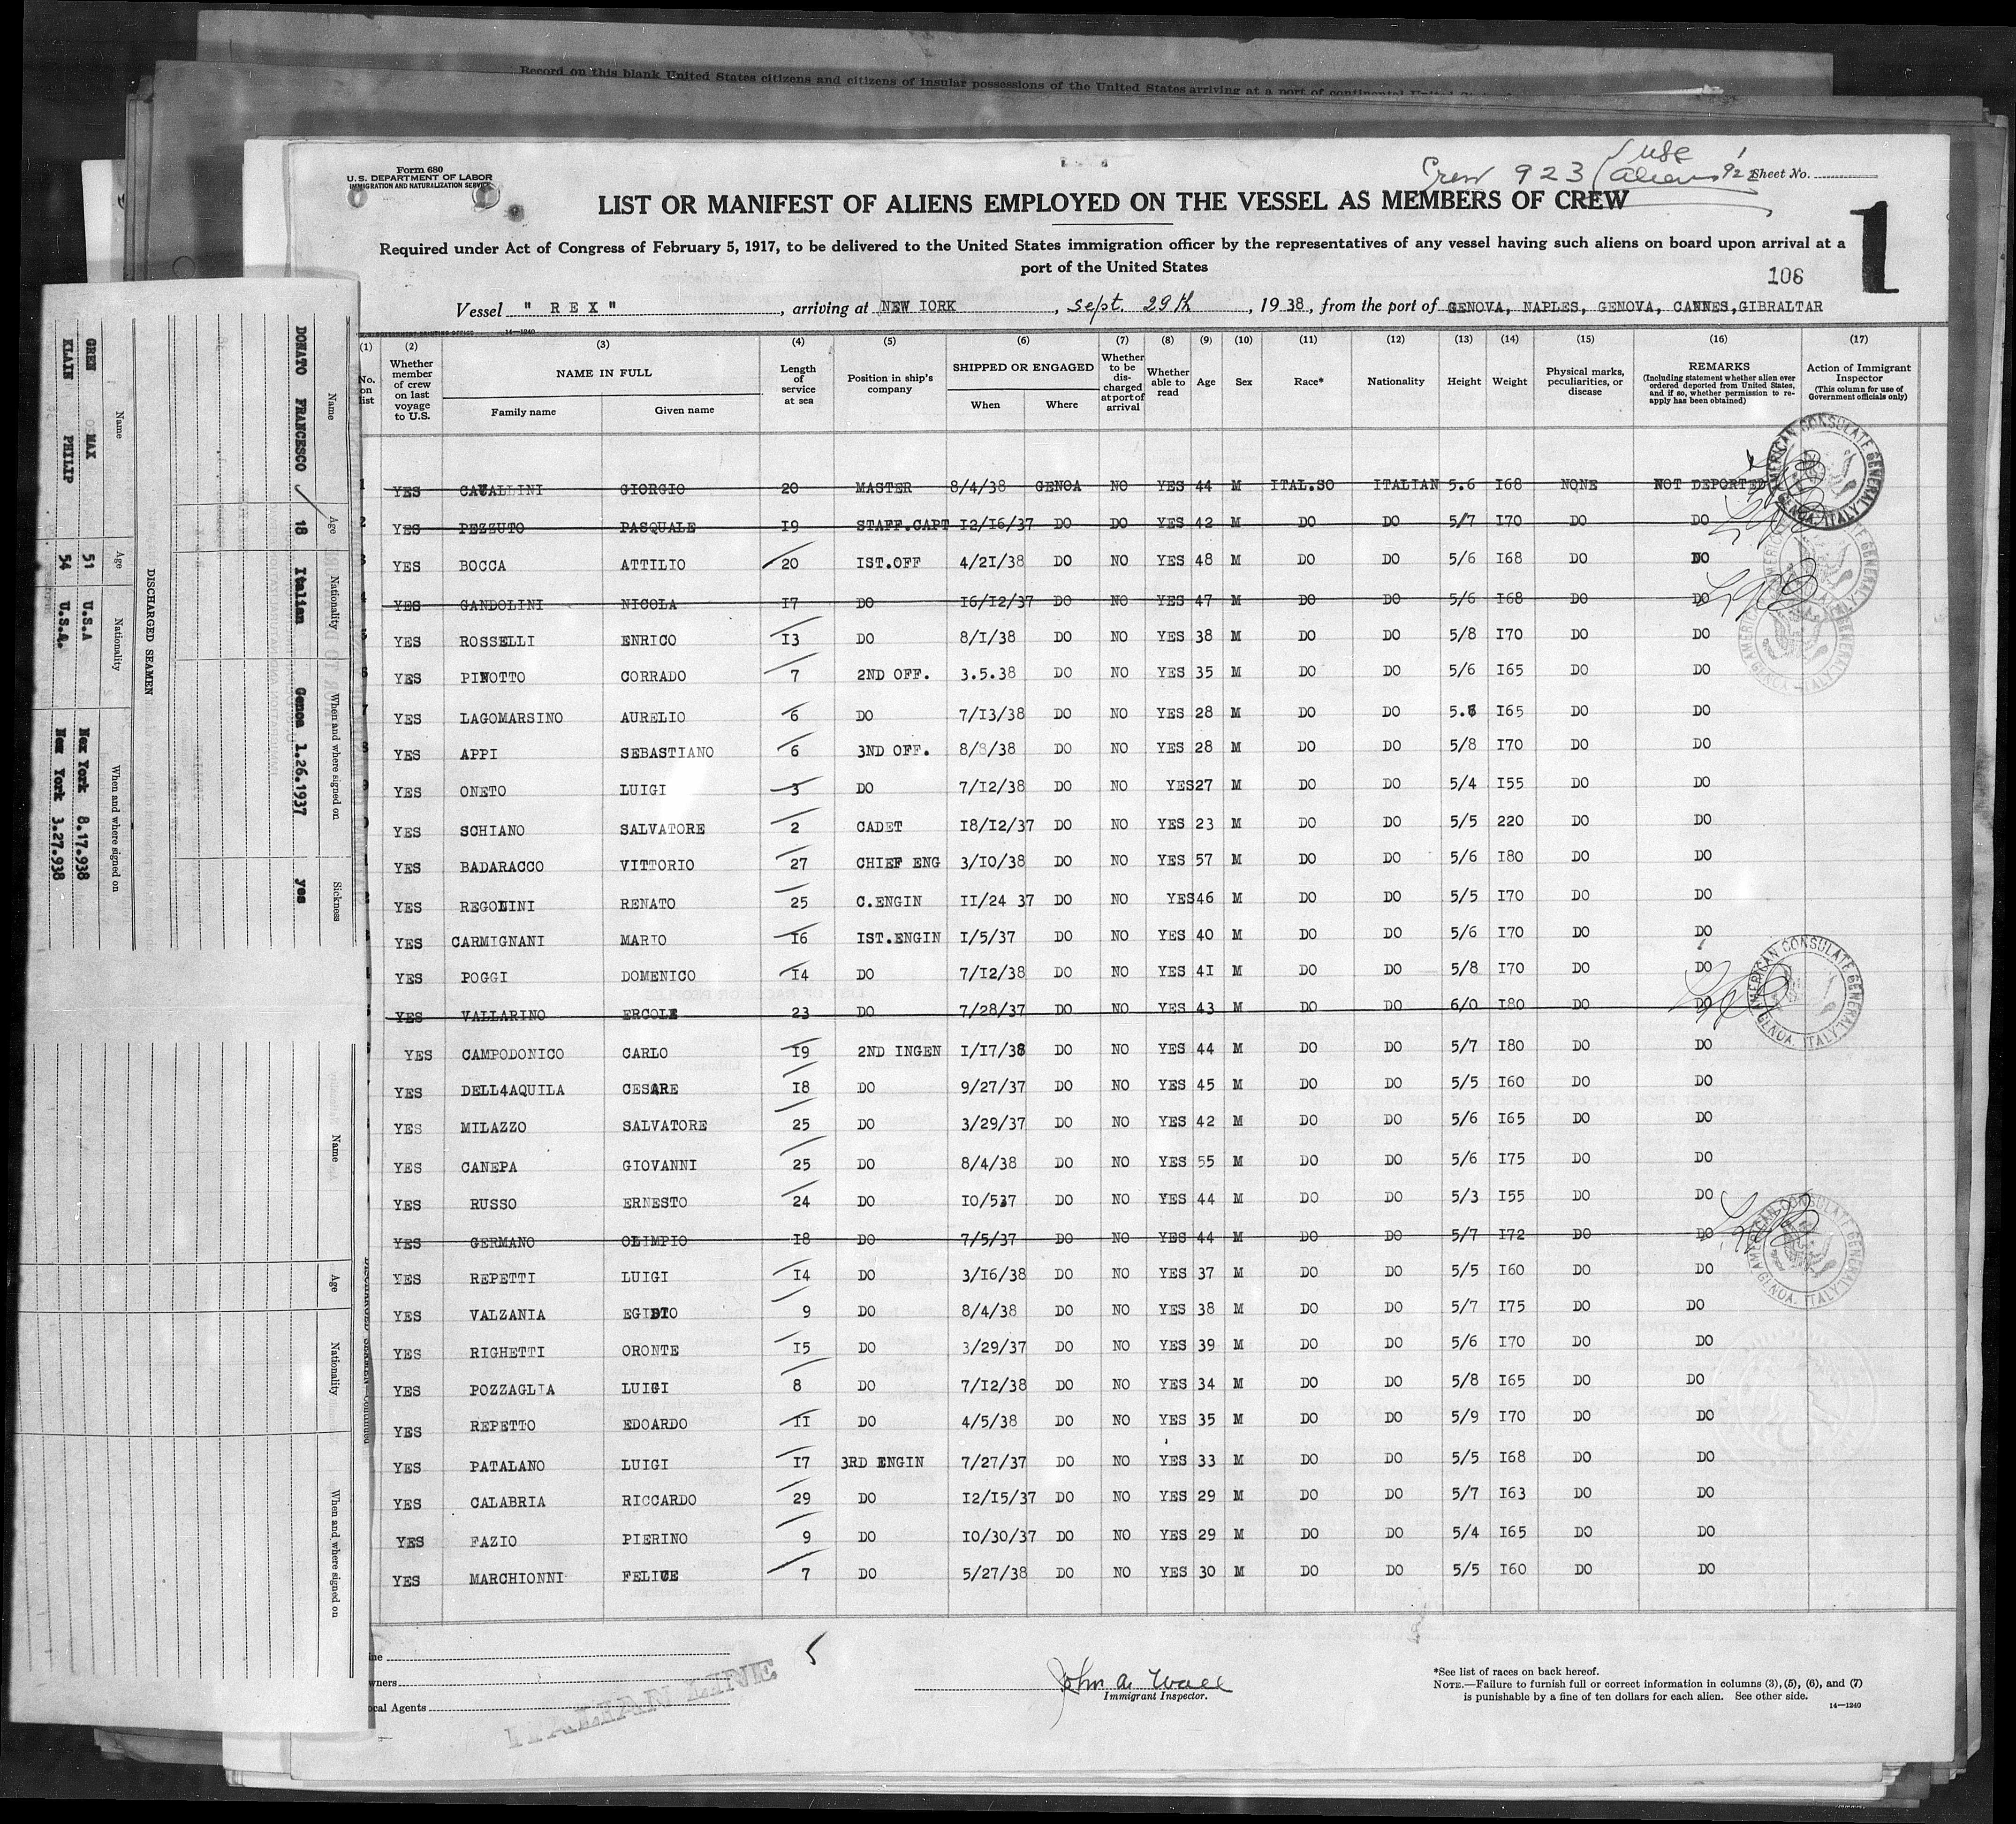 Record on this blank United States citizens and citizens of insular possessions of the United States arriving at a port of continental United
Form 680
U.S. DEPARTMENT OF LABOR
IMMIGRATION AND NATURALIZATION SERVICE
Crew 923
Sheet No.
LIST OR MANIFEST OF ALIENS EMPLOYED ON THE VESSEL AS MEMBERS OF CREW
1
Required under Act of Congress of February 5, 1917, to be delivered to the United States immigration officer by the representatives of any vessel having such aliens on board upon arrival at a
port of the United States
106
Vessel "REX", arriving at NEW IORK, Sept. 29th, 1938, from the port of GENOVA, NAPLES, GENOVA, CANNES, GIBRALTAR
14—1240
(1) (2) (3) (4) (5) (6) (7) (8) (9) (10) (11) (12) (13) (14) (15) (16) (17)
No. on list
Whether member of crew on last voyage to U.S.
NAME IN FULL
Family name
Given name
Length of service at sea
Position in ship's company
SHIPPED OR ENGAGED
When
Where
Whether to be discharged at port of arrival
Whether able to read
Age
Sex
Race*
Nationality
Height
Weight
Physical marks, peculiarities, or disease
REMARKS
(Including statement whether alien ever ordered deported from United States, and if so, whether permission to reapply has been obtained)
Action of Immigrant Inspector
(This column for use of Government officials only)
1 YES CAVALLINI GIORGIO 20 MASTER 8/4/38 GENOA NO YES 44 M ITAL.SO ITALIAN 5.6 I68 NONE NOT DEPORTED
2 YES PEZZUTO PASQUALE I9 STAFF.CAPT I2/I6/37 DO DO YES 42 M DO DO 5/7 I70 DO DO
3 YES BOCCA ATTILIO 20 IST.OFF 4/2I/38 DO NO YES 48 M DO DO 5/6 I68 DO DO
4 YES GANDOLINI NICOLA I7 DO I6/I2/37 DO NO YES 47 M DO DO 5/6 I68 DO DO
5 YES ROSSELLI ENRICO I3 DO 8/I/38 DO NO YES 38 M DO DO 5/8 I70 DO DO
6 YES PINOTTO CORRADO 7 2ND OFF. 3.5.38 DO NO YES 35 M DO DO 5/6 I65 DO DO
7 YES LAGOMARSINO AURELIO 6 DO 7/I3/38 DO NO YES 28 M DO DO 5.6 I65 DO DO
8 YES APPI SEBASTIANO 6 3ND OFF. 8/8/38 DO NO YES 28 M DO DO 5/8 I70 DO DO
9 YES ONETO LUIGI 3 DO 7/I2/38 DO NO YES27 M DO DO 5/4 I55 DO DO
0 YES SCHIANO SALVATORE 2 CADET I8/I2/37 DO NO YES 23 M DO DO 5/5 220 DO DO
YES BADARACCO VITTORIO 27 CHIEF ENG 3/I0/38 DO NO YES 57 M DO DO 5/6 I80 DO DO
YES REGOLINI RENATO 25 C.ENGIN II/24 37 DO NO YES46 M DO DO 5/5 I70 DO DO
YES CARMIGNANI MARIO I6 IST.ENGIN I/5/37 DO NO YES 40 M DO DO 5/6 I70 DO DO
YES POGGI DOMENICO I4 DO 7/I2/38 DO NO YES 4I M DO DO 5/8 I70 DO DO
YES VALLARINO ERCOLE 23 DO 7/28/37 DO NO YES 43 M DO DO 6/0 I80 DO DO
YES CAMPODONICO CARLO I9 2ND INGEN I/I7/38 DO NO YES 44 M DO DO 5/7 I80 DO DO
YES DELL4AQUILA CESARE I8 DO 9/27/37 DO NO YES 45 M DO DO 5/5 I60 DO DO
YES MILAZZO SALVATORE 25 DO 3/29/37 DO NO YES 42 M DO DO 5/6 I65 DO DO
YES CANEPA GIOVANNI 25 DO 8/4/38 DO NO YES 55 M DO DO 5/6 I75 DO DO
YES RUSSO ERNESTO 24 DO I0/537 DO NO YES 44 M DO DO 5/3 I55 DO DO
YES GERMANO OLIMPIO I8 DO 7/5/37 DO NO YES 44 M DO DO 5/7 I72 DO DO
YES REPETTI LUIGI I4 DO 3/I6/38 DO NO YES 37 M DO DO 5/5 I60 DO DO
YES VALZANIA EGIDIO 9 DO 8/4/38 DO NO YES 38 M DO DO 5/7 I75 DO DO
YES RIGHETTI ORONTE I5 DO 3/29/37 DO NO YES 39 M DO DO 5/6 I70 DO DO
YES POZZAGLIA LUIGI 8 DO 7/I2/38 DO NO YES 34 M DO DO 5/8 I65 DO DO
YES REPETTO EDOARDO II DO 4/5/38 DO NO YES 35 M DO DO 5/9 I70 DO DO
YES PATALANO LUIGI I7 3RD ENGIN 7/27/37 DO NO YES 33 M DO DO 5/5 I68 DO DO
YES CALABRIA RICCARDO 29 DO I2/I5/37 DO NO YES 29 M DO DO 5/7 I63 DO DO
YES FAZIO PIERINO 9 DO I0/30/37 DO NO YES 29 M DO DO 5/4 I65 DO DO
YES MARCHIONNI FELICE 7 DO 5/27/38 DO NO YES 30 M DO DO 5/5 I60 DO DO
AMERICAN CONSULATE GENERAL
GENOA, ITALY
AMERICAN CONSULATE GENERAL
GENOA, ITALY
AMERICAN CONSULATE GENERAL
GENOA, ITALY
ITALIAN LINE
ine
wners
ocal Agents
5
John A. Wall
Immigrant Inspector.
*See list of races on back hereof.
NOTE.—Failure to furnish full or correct information in columns (3), (5), (6), and (7)
is punishable by a fine of ten dollars for each alien. See other side.
14—1240
Name Age Nationality When and where signed on Sickness
DONATO FRANCESCO 18 Italian Genoa 1.26.1937 yes
DISCHARGED SEAMEN
Name Age Nationality When and where signed on
GREN MAX 51 U.S.A Nex York 8.17.938
KLAIN PHILIP 54 U.S.A. Nex York 3.27.938
Name Age Nationality When and where signed on